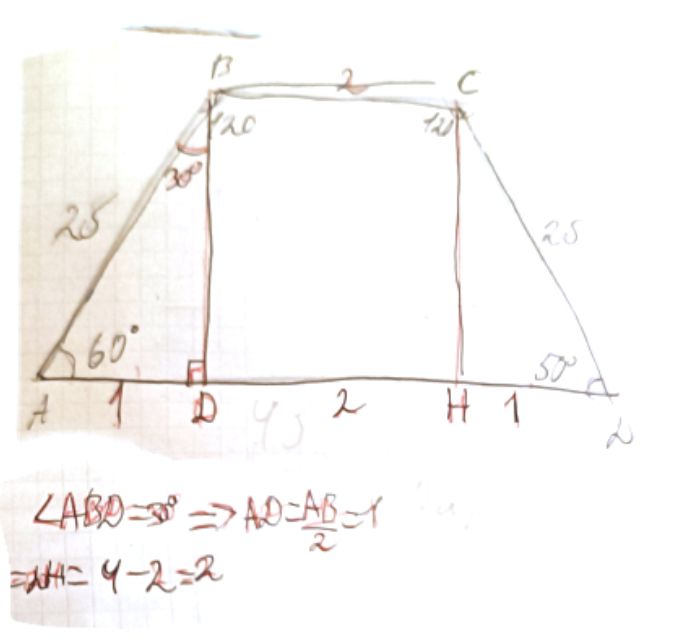 B 2 C
120 120
30°
25 25
60° 50°
A 1 D 2 H 1
∠ABD=30° ⇒ AD=AB/2=1
=4-2=2